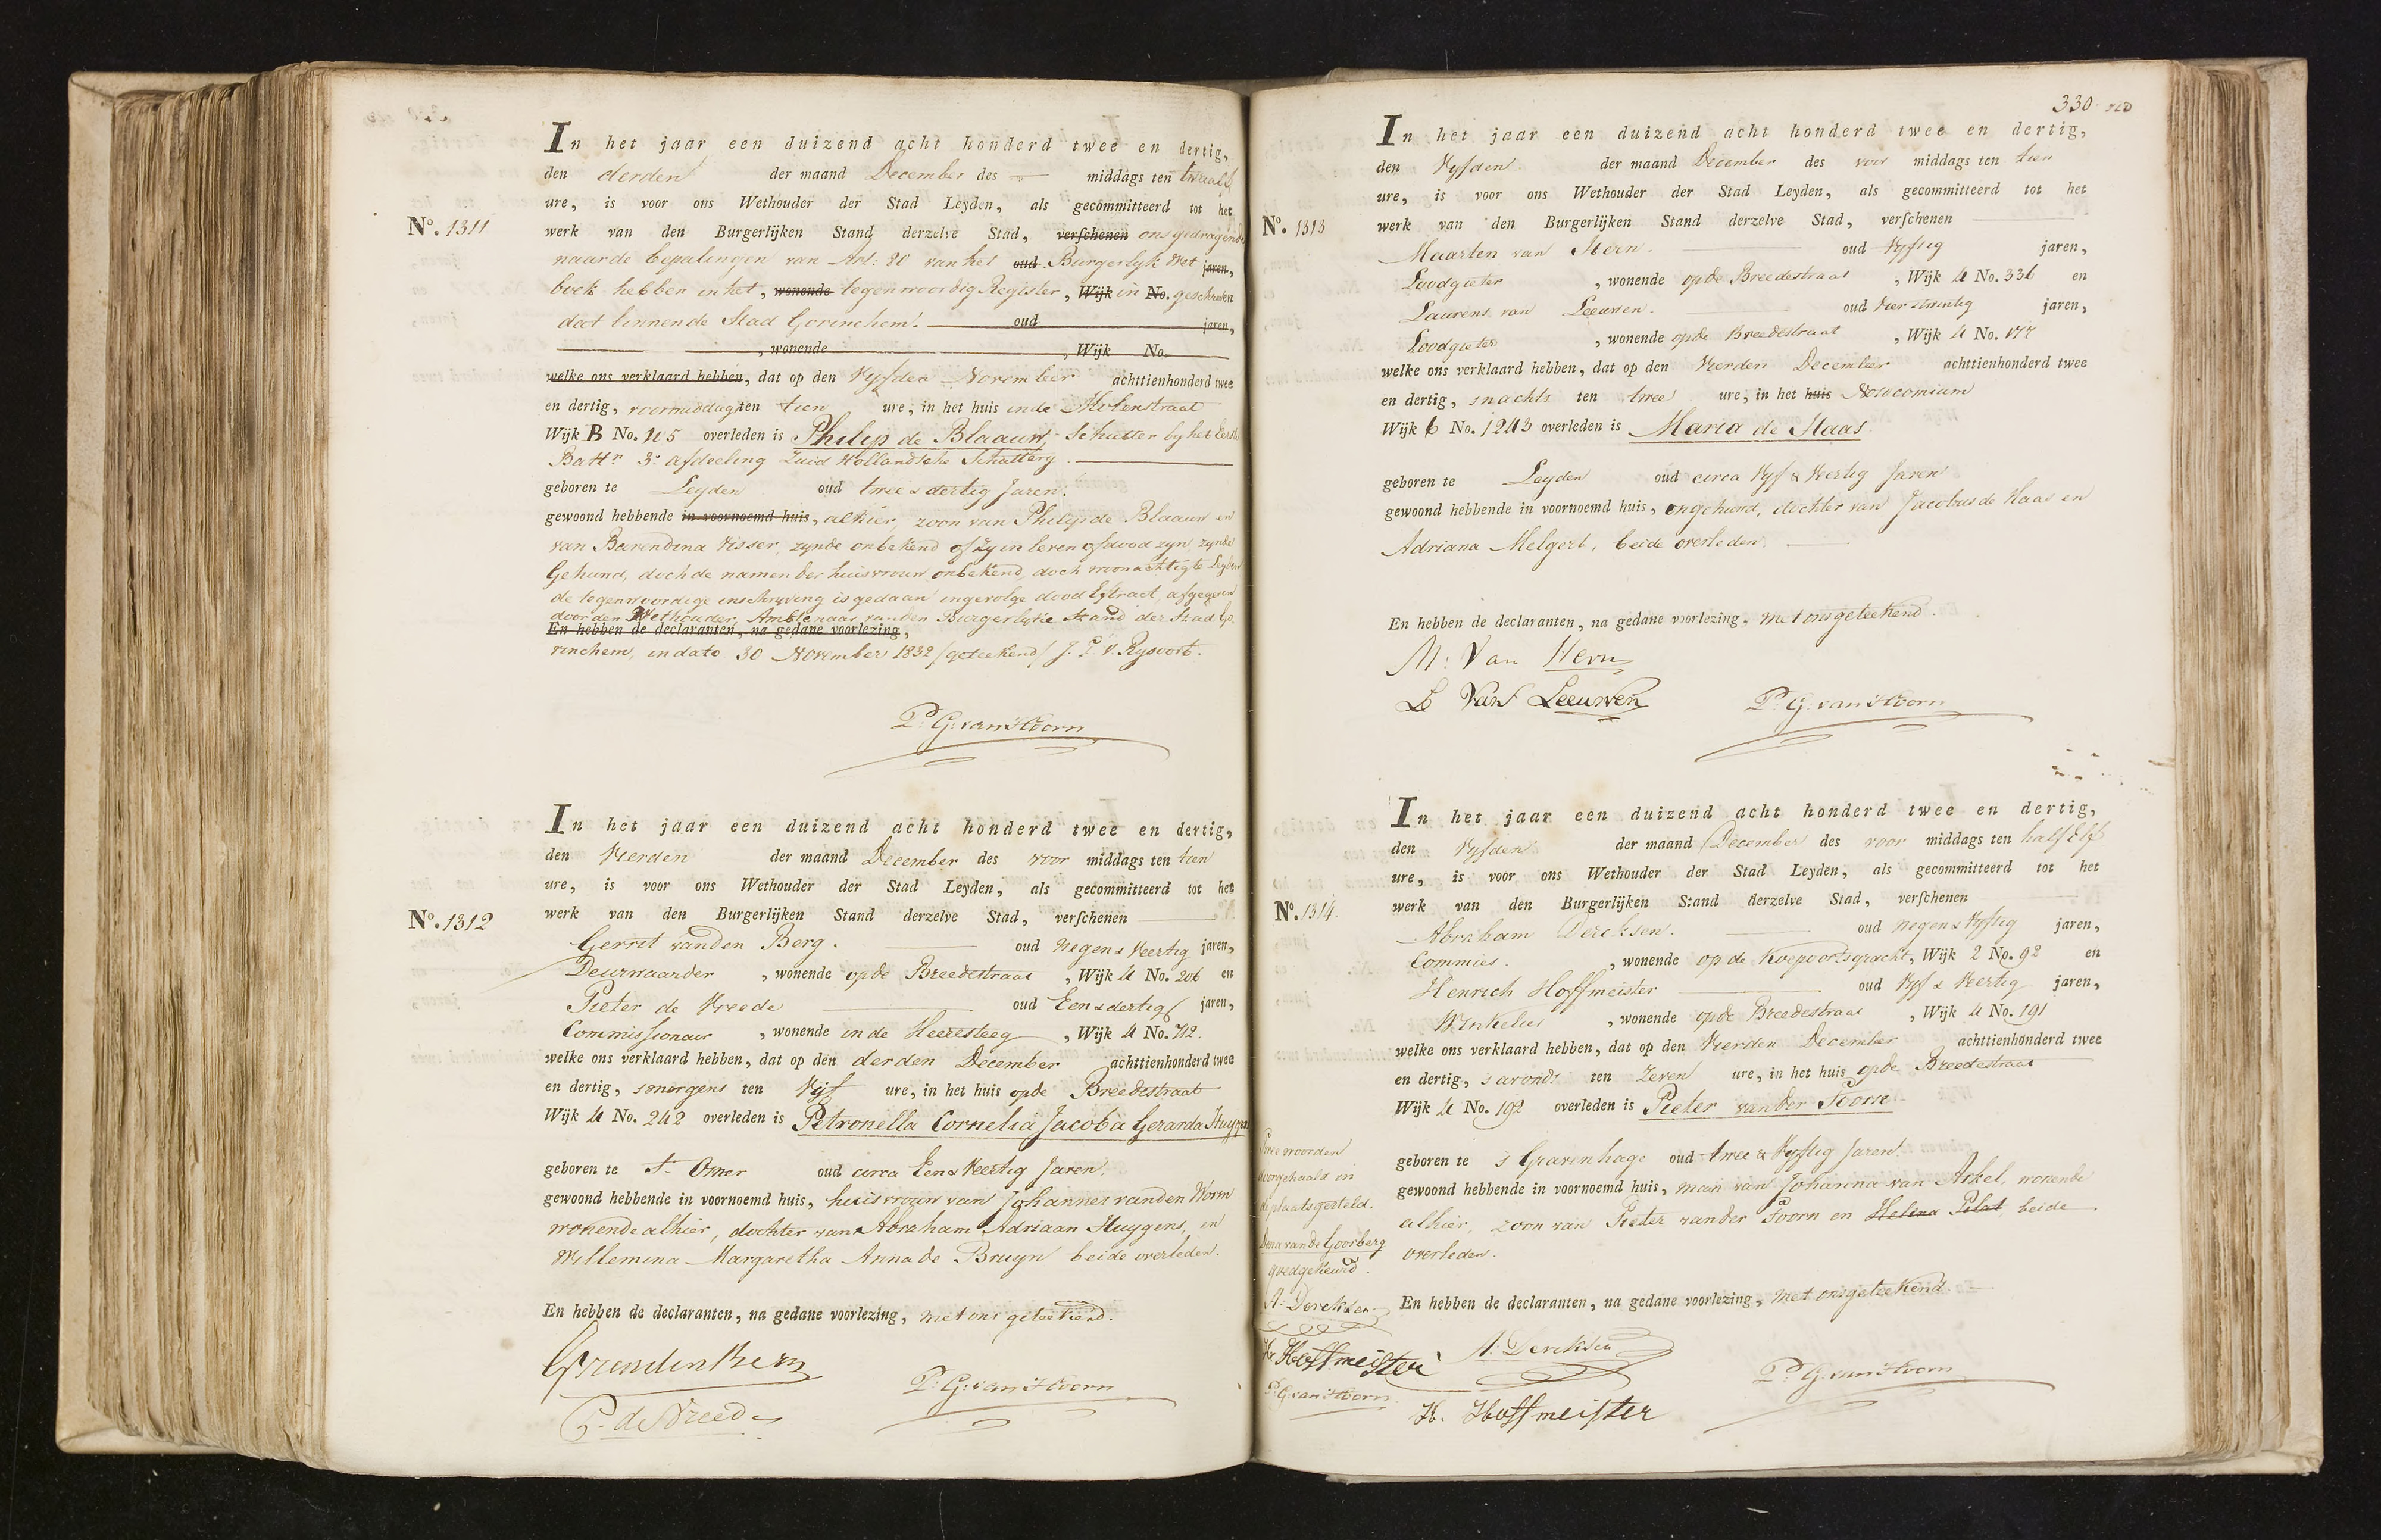 In het jaar een duizend acht honderd twee en dertig,
den derden der maand December des — middags ten twaalf
ure, is voor ons Wethouder der Stad Leyden, als gecommitteerd tot het
N⁰. 1311
werk van den Burgerlijken Stand derzelve Stad, verschenen ons gedragende
naar de bepalingen van Art: 80 van het oud Burgerlyk Wet jaren,
boek hebben in het, wonende tegenwoordig Register, Wijk in No. geschreven
dat binnen de Stad Gorinchem. oud jaren,
, wonende , Wijk No.
welke ons verklaard hebben, dat op den Vyfden November achttienhonderd twee
en dertig, voormiddag ten tien ure, in het huis in de Molenstraat
Wijk B No. 105 overleden is Philip de Blaauw, Schutter by het Eerste
Battn 3e afdeeling Zuid Hollandsche Schuttery
geboren te Leyden oud twee & dertig Jaren.
gewoond hebbende in voornoemd huis, alhier, zoon van Philip de Blaauw en
van Barendina Visser, zynde onbekend of zy in leven of dood zyn, zynde
Gehuwd, doch de namen der huisvrouw onbekend, doch woonachtig te Leyden
de tegenwoordige inschryving is gedaan ingevolge dood Extract, afgegeven
door den Wethouder, Ambtenaar van den Burgerlyke Stand der Stad Go
En hebben de declaranten, na gedane voorlezing,
rinchem, in dato 30 November 1832 /geteekend/ J. P. V. Rysoort.
P. G. van 't Hoorn
In het jaar een duizend acht honderd twee en dertig,
den Vierden der maand December des voor middags ten tien
ure, is voor ons Wethouder der Stad Leyden, als gecommitteerd tot het
N⁰. 1312
werk van den Burgerlijken Stand derzelve Stad, verschenen
Gerrit van den Berg. oud negen & Veertig jaren,
Deurwaarder , wonende op de Breedestraat , Wijk 4 No. 206 en
Pieter de Vreede oud Een & dertig jaren,
Commissionair , wonende in de Heeresteeg , Wijk 4 No. 712.
welke ons verklaard hebben, dat op den derden December achttienhonderd twee
en dertig, smorgens ten Vijf ure, in het huis op de Breedestraat
Wijk 4 No. 242 overleden is Petronella Cornelia Jacoba Gerarda Huygens
geboren te St. Omer oud circa Een & Veertig Jaren.
gewoond hebbende in voornoemd huis, huisvrouw van Johannes van den Worm
wonende alhier, dochter van Abraham Adriaan Huygens, en
Willemina Margaretha Anna de Bruyn beide overleden.
En hebben de declaranten, na gedane voorlezing, met ons geteekend.
P. de Vreede
P. G. van 't Hoorn
330
In het jaar een duizend acht honderd twee en dertig,
den Vyfden der maand December des voor middags ten tien
ure, is voor ons Wethouder der Stad Leyden, als gecommitteerd tot het
N⁰. 1313
werk van den Burgerlijken Stand derzelve Stad, verschenen
Maarten van Hern. oud Vyftig jaren,
Loodgieter , wonende op de Breedestraat , Wijk 4 No. 336 en
Laurens van Leeuwen. oud Vier & twintig jaren,
Loodgieter , wonende op de Breedestraat , Wijk 4 No. 177
welke ons verklaard hebben, dat op den Vierden December achttienhonderd twee
en dertig, snachts ten twee ure, in het huis Nosocomium
Wijk 6 No. 1243 overleden is Maria de Haas
geboren te Leyden oud circa Vyf & Veertig Jaren
gewoond hebbende in voornoemd huis, ongehuwd, dochter van Jacobus de Haas en
Adriana Melgert, beide overleden.
En hebben de declaranten, na gedane voorlezing, met ons geteekend.
M: Van Hern
L Van Leeuwen
P. G. van 't Hoorn
In het jaar een duizend acht honderd twee en dertig,
den Vyfden der maand December des voor middags ten half Elf
ure, is voor ons Wethouder der Stad Leyden, als gecommitteerd tot het
N⁰. 1314.
werk van den Burgerlijken Stand derzelve Stad, verschenen
Abraham Dercksen. oud negen & Vyftig jaren,
Commies. , wonende op de Koepoortsgracht, Wijk 2 No. 92 en
Henrich Hoffmeister oud Vyf & Veertig jaren,
Winkelier , wonende op de Breedestraat , Wijk 4 No. 191
welke ons verklaard hebben, dat op den Vierden December achttienhonderd twee
en dertig, s'avonds ten Zeven ure, in het huis op de Breedestraat
Wijk 4 No. 192 overleden is Pieter van der Toorn
geboren te 's Gravenhage oud twee & Vyftig Jaren.
gewoond hebbende in voornoemd huis, man van Johanna van Arkel, wonende
alhier, zoon van Pieter van der Toorn en Helena Pilat beide
overleden.
En hebben de declaranten, na gedane voorlezing, met ons geteekend.
Twee woorden
doorgehaald in
de plaats gesteld.
van de Goorberg
goedgekeurd.
A: Dercksen
H. Hoffmeister
P. G. van 't Hoorn
A: Dercksen
H. Hoffmeister
P. G. van 't Hoorn